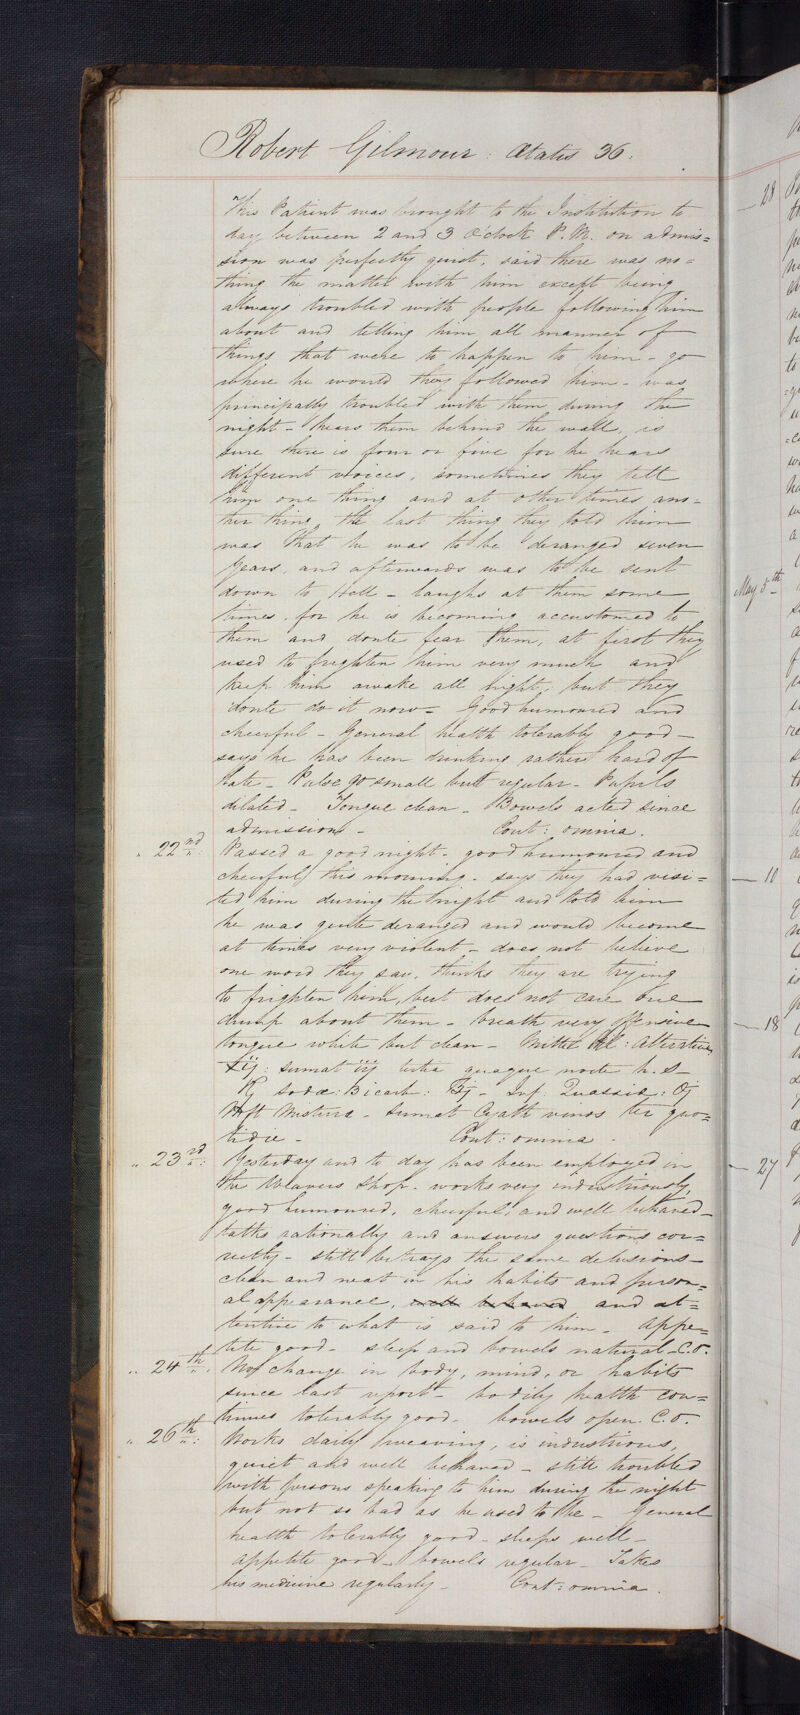 Robert Gilmour: Ætatis 36.
This Patient was brought to the Institution to
day between 2 and 3 O'clock P.M. on admis=
sion was perfectly quiet, said there was no=
thing the matter with him except being
always troubled with people following him
about and telling him all manner of
things that were to happen to him - go
where he would they followed him - was
principally troubled with them during the
night - hears them behind the wall, is
sure there is four or five for he hears
different voices, sometimes they tell
him one thing and at other times ano=
ther thing, the last thing they told him
was that he was to be deranged seven
years, and afterwards was to be sent
down to Hell - laughs at them some
times, for he is becoming accustomed to
them and donte fear them, at first they
used to frighten him very much and
keep him awake all night, but they
donte do it now - Good humoured and
cheerful - General health tolerably good -
says he has been drinking rather hard of
late - Pulse 90 small but regular - Pupils
dilated - Tongue clean - Bowels acted since
admission - Cont: omnia.
" 22nd: Passed a good night - good humoured and
cheerful this morning - says they had visi=
ted him during the night and told him
he was quite deranged and would become
at times very violent - does not believe
one word they say, thinks they are trying
to frighten him, but does not care one
dump about them - breath very offensive
tongue white but clean - Mitte Pil: Alterativ
xij: sumat iij tertia quaque nocte h.s -
R Sodæ: Bicarb: - Inf: Quassiæ: Oj
Ft Mistura - Sumat Cyath vinos ter quo=
tidie - Cont: omnia.
" 23rd: Yesterday and to day has been employed in
the Weavers Shop - works very industriously,
good humoured, cheerful, and well behaved -
talks rationally and answers questions cor=
rectly - still betrays the same delusions -
clean and neat in his habits and person=
al appearance, well behaved and at=
tentive to what is said to him - Appe=
tite good - sleep and bowels natural - C.O.
" 24th: No change in body, mind, or habits
since last report - bodily health con=
tinues tolerably good - bowels open. C.O.
" 26th: Works daily weaving, is industrious,
quiet and well behaved - still troubled
with persons speaking to him during the night
but not so bad as he used to be - General
health tolerably good - sleeps well -
appetite good - bowels regular - Takes
his medicine regularly - Cont: omnia.
28
May 5th
10
18
27